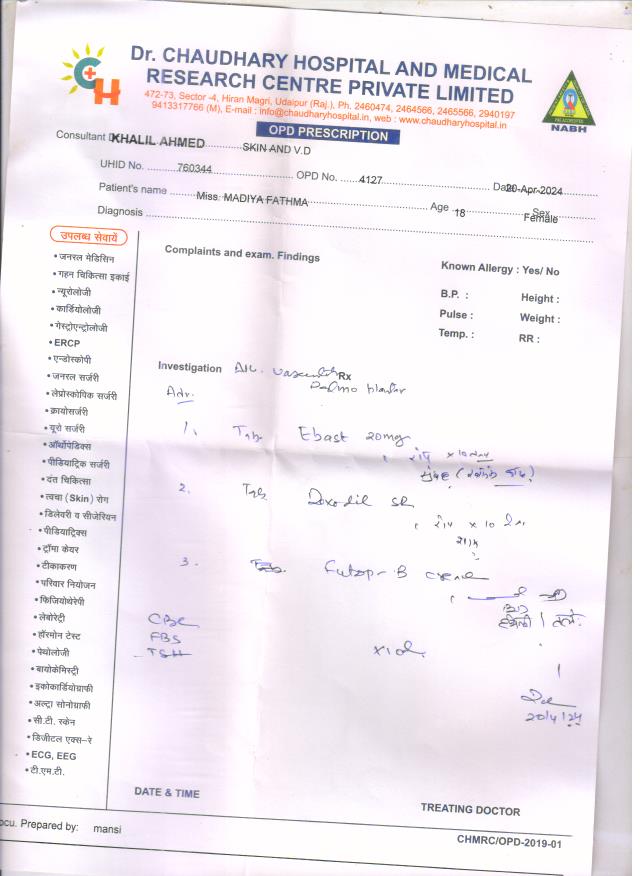 Dr. CHAUDHARY HOSPITAL AND MEDICAL
RESEARCH CENTRE PRIVATE LIMITED
472-73, Sector -4, Hiran Magri, Udaipur (Raj.), Ph. 2460474, 2464566, 2465566, 2940197
9413317766 (M), E-mail : info@chaudharyhospital.in, web : www.chaudharyhospital.in
CH
NABH
OPD PRESCRIPTION
Consultant KHALIL AHMED SKIN AND V.D
UHID No. 760344 OPD No. 4127 Date 20-Apr-2024
Patient's name Miss. MADIYA FATHMA Age 18 Sex Female
Diagnosis
उपलब्ध सेवायें
• जनरल मेडिसिन
• गहन चिकित्सा इकाई
• न्यूरोलोजी
• कार्डियोलोजी
• गेस्ट्रोएन्ट्रोलोजी
• ERCP
• एन्डोस्कोपी
• जनरल सर्जरी
• लेप्रोस्कोपिक सर्जरी
• क्रायोसर्जरी
• यूरो सर्जरी
• ऑर्थोपेडिक्स
• पीडियाट्रिक सर्जरी
• दंत चिकित्सा
• त्वचा (Skin) रोग
• डिलेवरी व सीजेरियन
• पीडियाट्रिक्स
• ट्रॉमा केयर
• टीकाकरण
• परिवार नियोजन
• फिजियोथेरेपी
• लेबोरेट्री
• हॉरमोन टेस्ट
• पेथोलोजी
• बायोकेमिस्ट्री
• इकोकार्डियोग्राफी
• अल्ट्रा सोनोग्राफी
• सी.टी. स्केन
• डिजीटल एक्स-रे
• ECG, EEG
• टी.एम.टी.
Complaints and exam. Findings
Known Allergy : Yes/ No
B.P. : Height :
Pulse : Weight :
Temp. : RR :
Investigation Rx
Adv.
1. Tab. Ebast 20mg
x 10
2. Tab. Doxodil SR
x 10
3. B
CBC
FBS
TSH
20/4/24
DATE & TIME
TREATING DOCTOR
Docu. Prepared by: mansi
CHMRC/OPD-2019-01